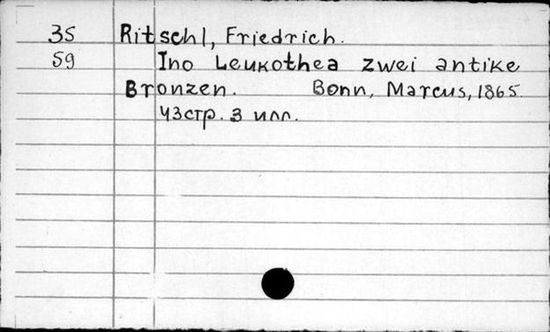 35 Ritschl, Friedrich.
59 Ino Leukothea zwei antike
Bronzen. Bonn, Marcus, 1865
43стр. 3 илл.